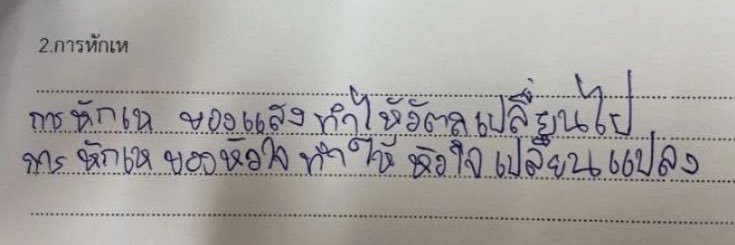 2.การหักเห
การหักเห ของแสง ทำให้วัตถุเปลี่ยนไป
การหักเหของหัวใจ ทำให้ หัวใจเปลี่ยนแปลง